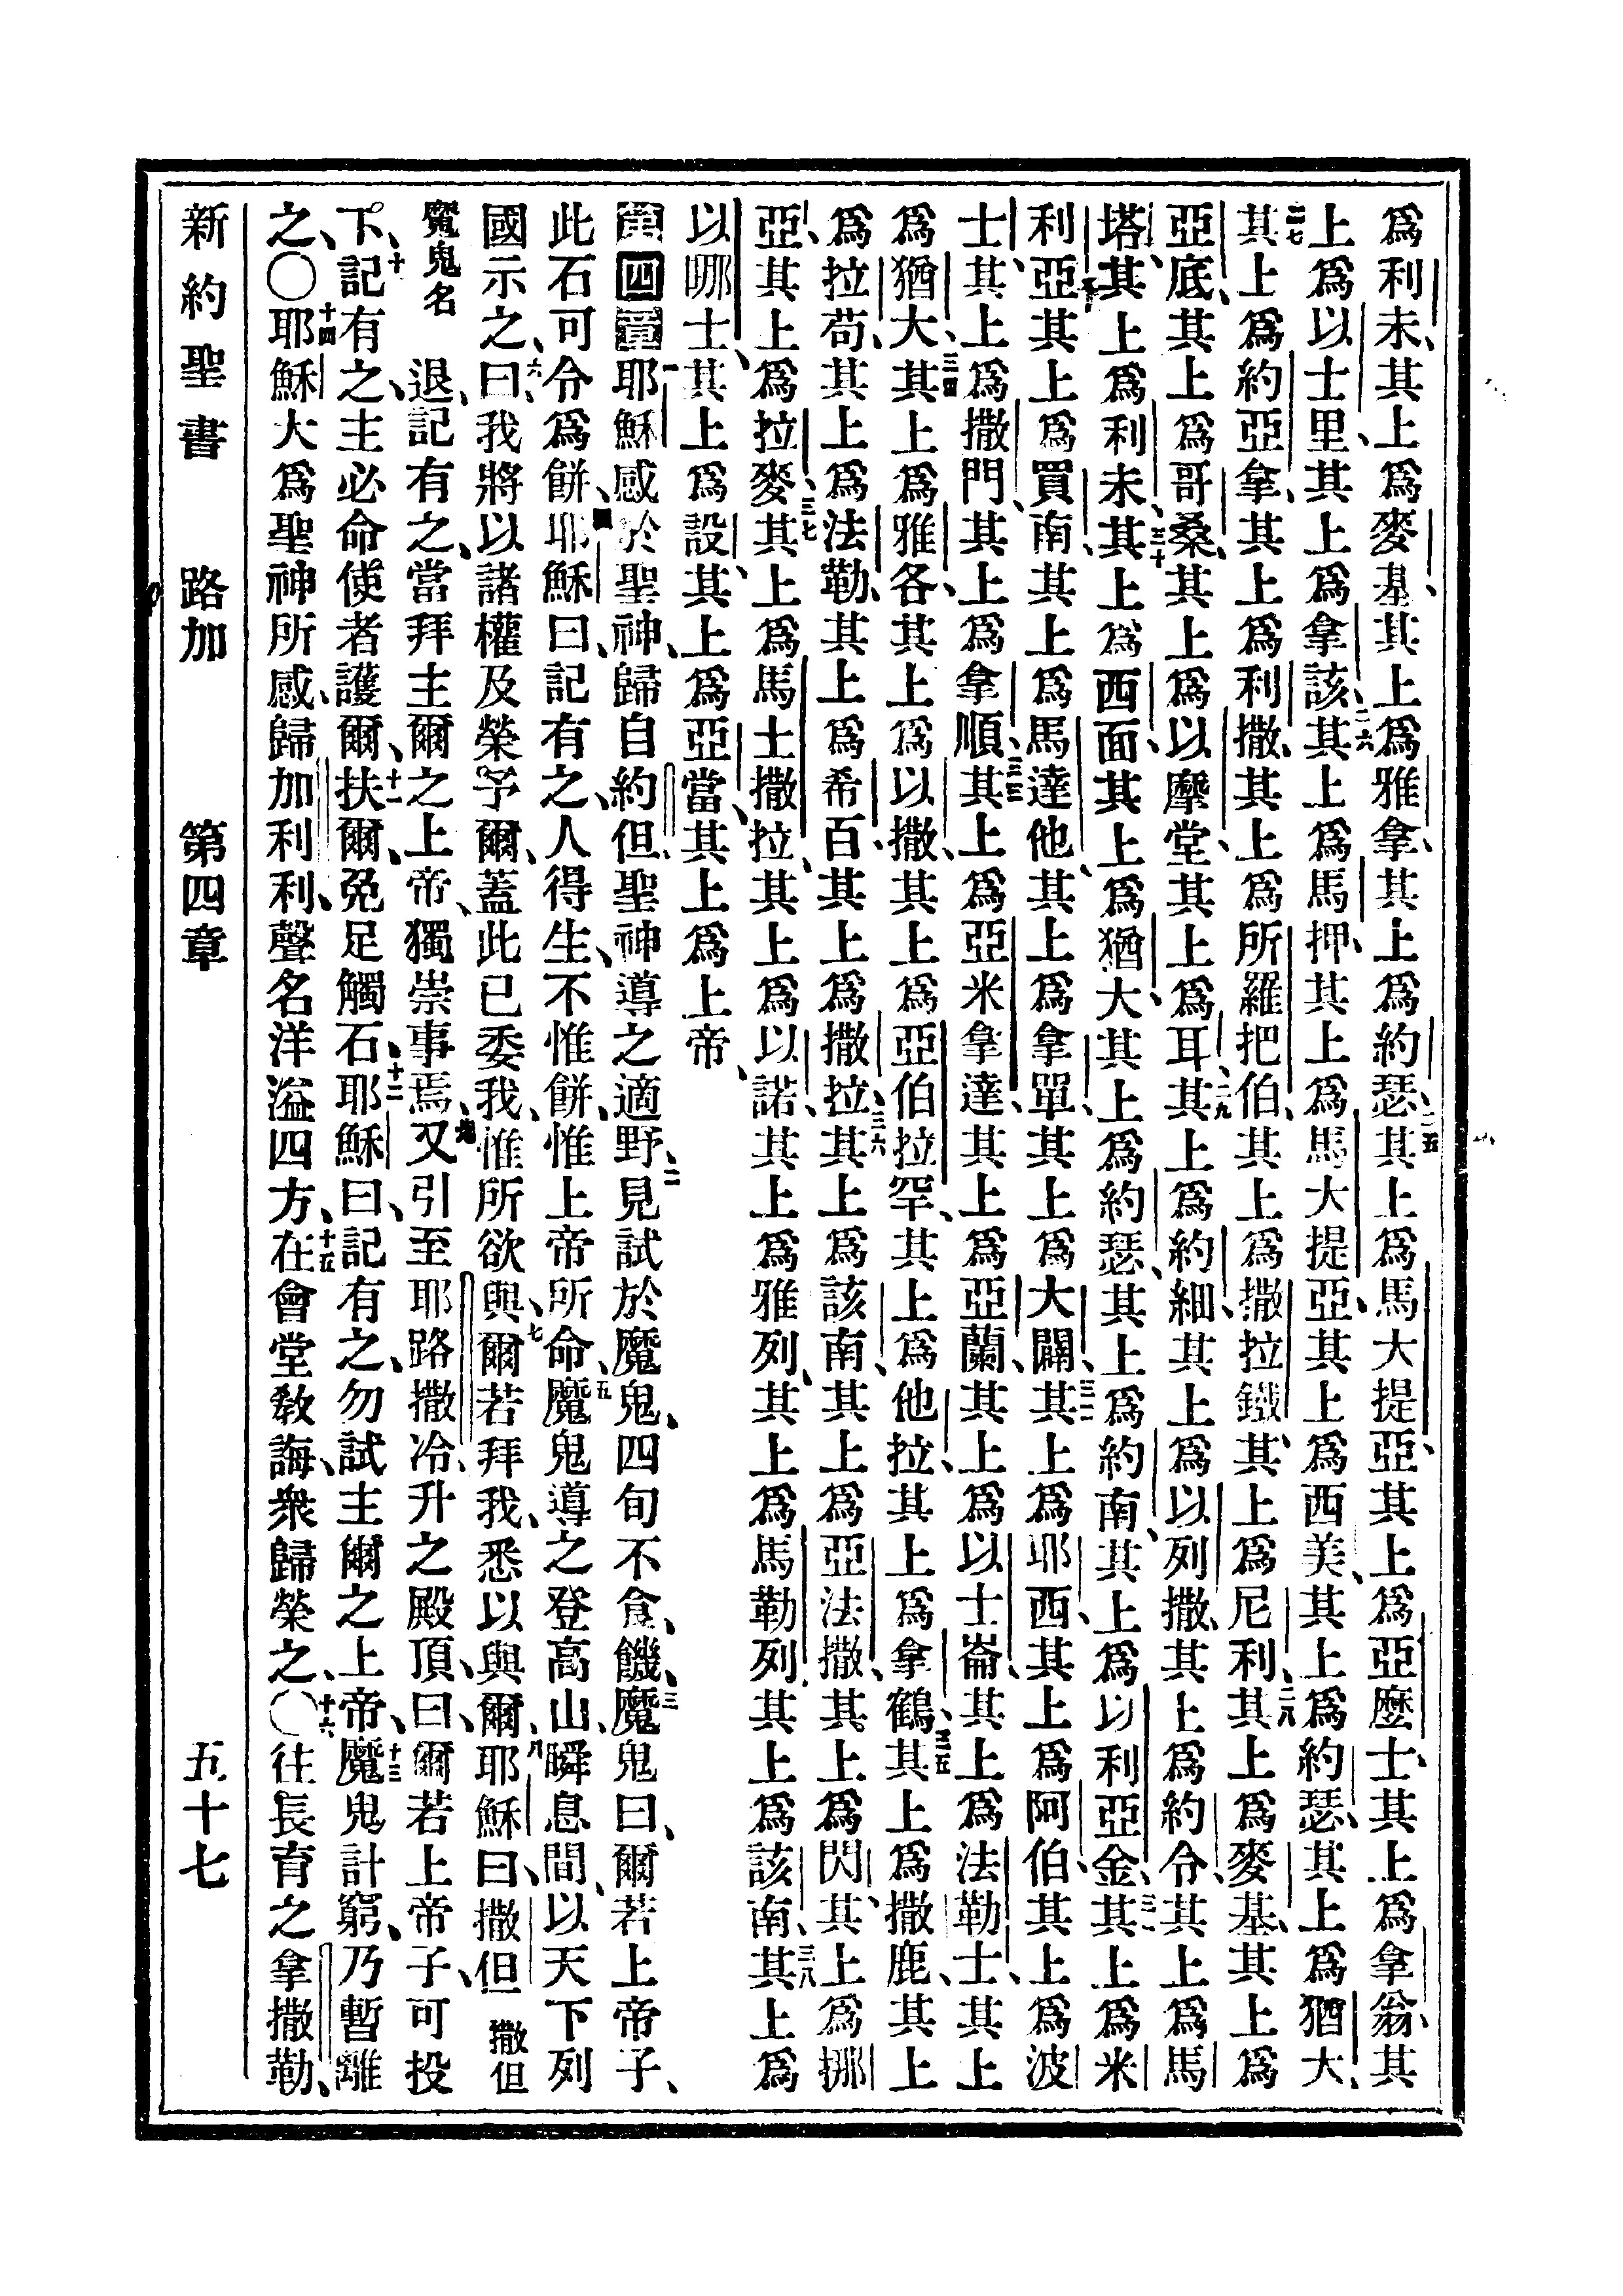 爲利未、其上爲麥基、其上爲雅拿、其上爲約瑟、二五其上爲馬大提亞、其上爲亞麼士、其上爲拿翁、其
上爲以士里、其上爲拿該、二六其上爲馬押、其上爲馬大提亞、其上爲西美、其上爲約瑟、其上爲猶大、
二七其上爲約亞拿、其上爲利撒、其上爲所羅把伯、其上爲撒拉鐵、其上爲尼利、二八其上爲麥基、其上爲
亞底、其上爲哥桑、其上爲以摩堂、其上爲耳、二九其上爲約細、其上爲以列撒、其上爲約令、其上爲馬
塔、其上爲利未、三十其上爲西面、其上爲猶大、其上爲約瑟、其上爲約南、其上爲以利亞金、三一其上爲米
利亞、其上爲買南、其上爲馬達他、其上爲拿單、其上爲大闢、三二其上爲耶西、其上爲阿伯、其上爲波
士、其上爲撒門、其上爲拿順、三三其上爲亞米拿達、其上爲亞蘭、其上爲以士崙、其上爲法勒士、其上
爲猶大、三四其上爲雅各、其上爲以撒、其上爲亞伯拉罕、其上爲他拉、其上爲拿鶴、三五其上爲撒鹿、其上
爲拉苟、其上爲法勒、其上爲希百、其上爲撒拉、三六其上爲該南、其上爲亞法撒、其上爲閃、其上爲挪
亞、其上爲拉麥、三七其上爲馬士撒拉、其上爲以諾、其上爲雅列、其上爲馬勒列、其上爲該南、三八其上爲
以哪士、其上爲設、其上爲亞當、其上爲上帝、
第四章一耶穌感於聖神、歸自約但、聖神導之適野、二見試於魔鬼、四旬不食、饑、三魔鬼曰、爾若上帝子、
此石可令爲餅、耶穌曰、記有之、人得生、不惟餅、惟上帝所命、五魔鬼導之登高山、瞬息間、以天下列
國示之、六曰、我將以諸權及榮予爾、蓋此已委我、惟所欲與、七爾若拜我、悉以與爾、八耶穌曰、撒但撒但
魔鬼名退、記有之、當拜主爾之上帝、獨崇事焉、九又引至耶路撒冷、升之殿頂、曰、爾若上帝子、可投
下、十記有之、主必命使者護爾、十一扶爾、免足觸石、十二耶穌曰、記有之、勿試主爾之上帝、十三魔鬼計窮、乃暫離
之、〇十四耶穌大爲聖神所感、歸加利利、聲名洋溢四方、十五在會堂教誨、衆歸榮之、〇十六往長育之拿撒勒、
新約聖書 路加 第四章 五十七